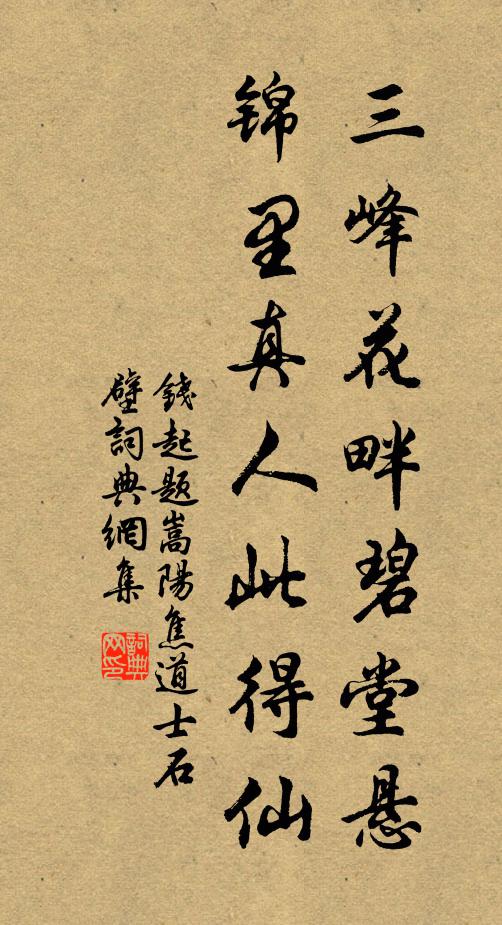 三峰花畔碧堂悬
锦里真人此得仙
錢起题嵩陽焦道士石
壁詞典網集
詞典
网印